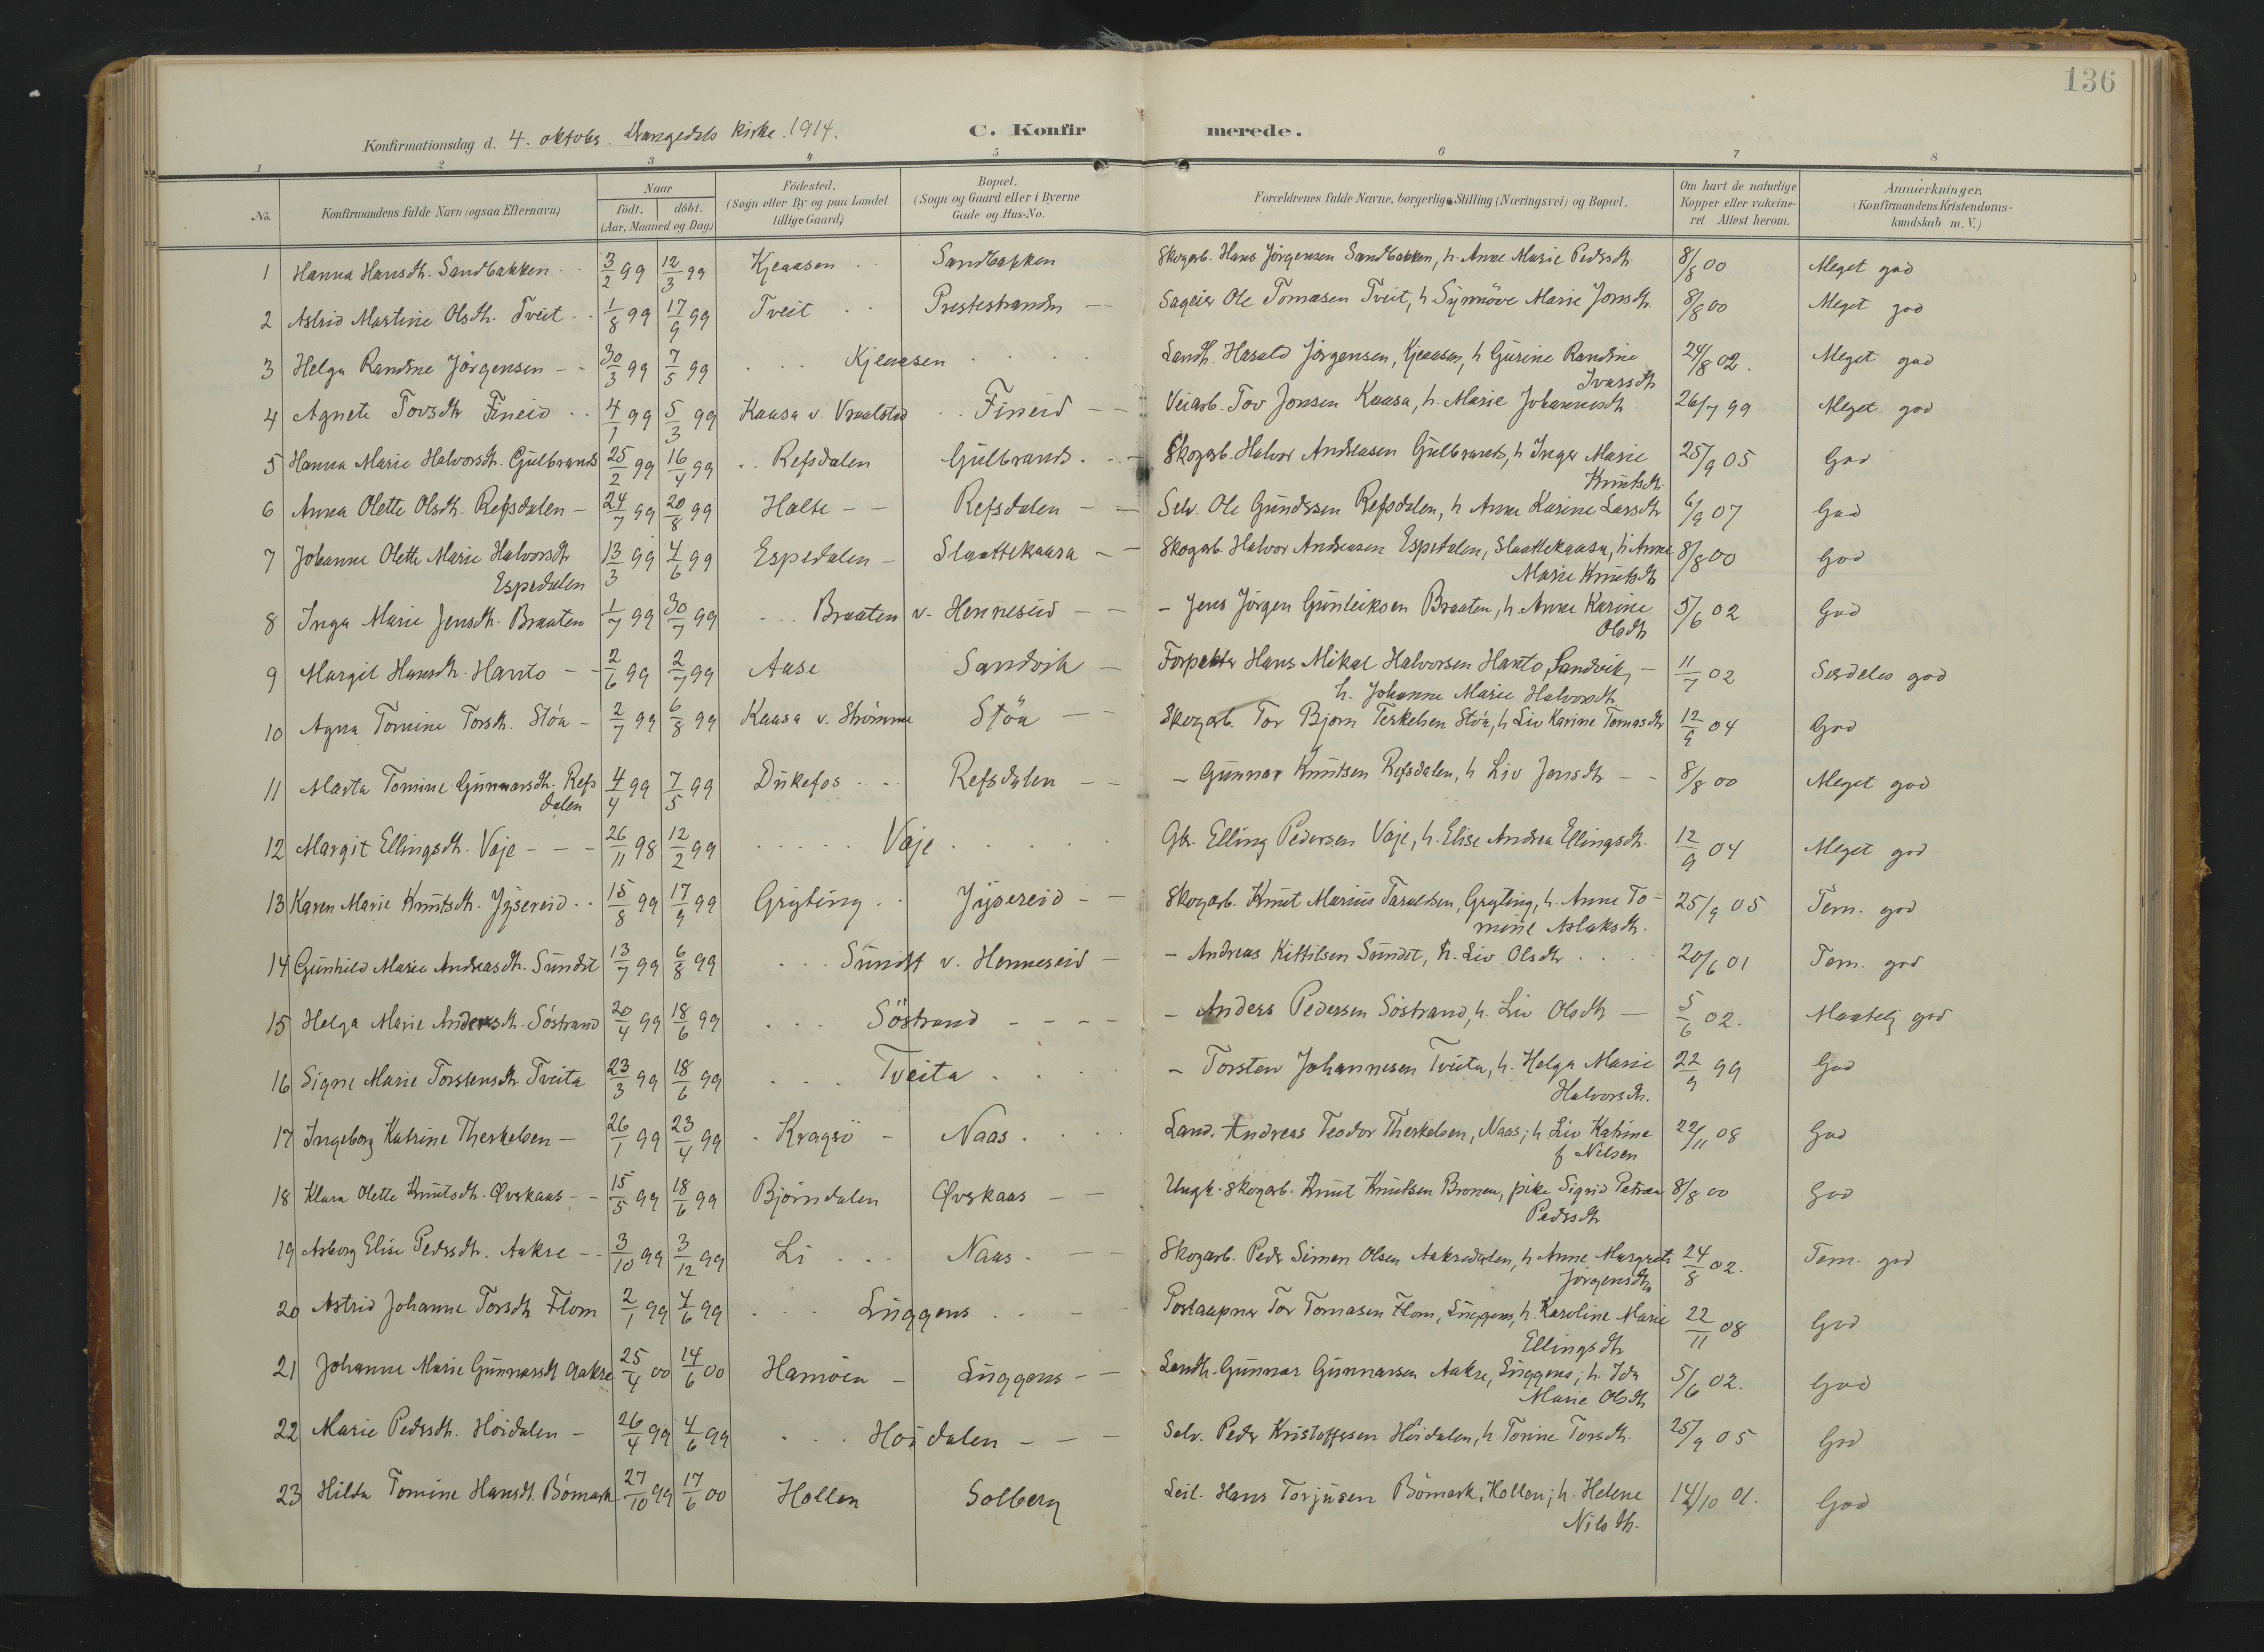 136
Konfirmationsdag d. 4. oktober. Drangedals kirke. 1914. C. Konfirmerede.
1 2 3 4 5 6 7 8
No. Konfirmandens fulde Navn (ogsaa Efternavn) Naar födt. döbt. (Aar, Maaned og Dag.) Födested. (Sogn eller By og paa Landet tillige Gaard) Bopæl. (Sogn og Gaard eller i Byerne Gade og Hus-No. Forældrenes fulde Navne, borgerlige Stilling (Næringsvei) og Bopæl. Om havt de naturlige Kopper eller vakcineret Attest herom. Anmerkninger. (Konfirmandens Kristendomskundskab m. V.)
1 Hanna Hansdtr. Sandbakken 3/2 99 12/3 99 Kjeaasen Sandbakken Skogarb. Hans Jörgensen Sandbakken, h. Anne Marie Pedersdtr. 8/8 00 Meget god
2 Astrid Martine Olsdtr. Tveit 1/8 99 17/9 99 Tveit Prestestranden Sageier Ole Tomasen Tveit, h. Synnöve Marie Jonsdtr 8/8 00 Meget god
3 Helga Randine Jörgensen 30/3 99 7/5 99 Kjeaasen Landh. Harald Jörgensen, Kjeaasen, h Gurine Randine 24/8 02. Meget god
Ivarsdtr
4 Agnete Tovsdtr Fineid 4/1 99 5/3 99 Kaasa v. Vraalstad Fineid Veiarb. Tov Jonsen Kaasa, h. Marie Johannesdtr 26/7 99 Meget god
5 Hanna Marie Halvorsdtr. Gulbrands 25/2 99 16/4 99 Refsdalen Gulbrands. Skogarb. Halvor Andreasen Gulbrands, h Inger Marie 25/9 05 God
Knutsdtr.
6 Anna Olette Olsdtr. Refsdalen 24/7 99 20/8 99 Holte Refsdalen Selv. Ole Gundersen Refsdalen, h Anne Karine Larsdtr 6/9 07 God
7 Johanne Olette Marie Halvorsdtr 13/3 99 4/6 99 Espedalen Slaattekaasa Skogarb. Halvor Andreasen Espedalen, Slaattekaasa, h Anne 8/8 00 God
Espedalen Marie Knutsdtr
8 Inga Marie Jensdtr. Braaten 1/7 99 30/7 99 Braaten v. Henneseid - Jens Jörgen Gunleiksen Braaten, h. Anne Karine 5/6 02 God
Olsdtr
9 Margit Hansdtr. Hanto 2/6 99 2/7 99 Aase Sandvik Forpakter Hans Mikal Halvorsen Hanto, Sandvik, 11/7 02 Serdeles god
h. Johanne Marie Halvorsdtr
10 Agna Tomine Torsdtr. Stöa 2/7 99 6/8 99 Kaasa v. Strömme Stöa Skogarb. Tor Bjorn Terkelsen Stöa, h Liv Karine Tomasdtr 12/9 04 God
11 Marta Tomine Gunnarsdtr. Refs 4/4 99 7/5 99 Dukefos Refsdalen - Gunnar Knutsen Refsdalen, h Liv Jensdtr 8/8 00 Meget god
dalen
12 Margit Ellingsdtr. Vaje 26/11 98 12/2 99 Vaje Gbr. Elling Pedersen Vaje, h. Elise Andrea Ellingsdtr. 12/9 04 Meget god
13 Karen Marie Knutsdtr. Jysereid 15/8 99 17/9 99 Gryting Jysereid Skogarb. Knut Marius Taraldsen, Gryting, h. Anne To- 25/9 05 Tem. god
mine Aslaksdtr.
14 Gunhild Marie Andreasdtr. Sundet 13/7 99 6/8 99 Sundet v. Henneseid - Andreas Kittilsen Sundet, h. Liv Olsdtr 20/6 01 Tem. god
15 Helga Marie Andersdtr. Söstrand 20/4 99 18/6 99 Söstrand - Anders Pedersen Söstrand, h. Liv Olsdtr 5/6 02. Maatelig god
16 Signe Marie Torstensdtr Tveita 23/3 99 18/6 99 Tveita - Torsten Johannesen Tveita, h. Helga Marie 22/9 99 God
Halvorsdtr.
17 Ingeborg Katrine Therkelsen 26/1 99 23/4 99 Kragsö Naas Land. Andreas Teodor Therkelsen, Naas; h. Liv Katrine 22/11 08 God
f Nilsen
18 Klara Olette Knutsdtr. Øverkaas 15/5 99 18/6 99 Björndalen Øverkaas Ungk. skogarb. Knut Knutsen Bronen, pike Sigrid Petrea 8/8 00 God
Pedersdtr
19 Asborg Elise Pedersdtr. Aakre 3/10 99 3/12 99 Li Naas Skogarb. Peder Simen Olsen Aakredalen, h Anne Margrete 24/8 02. Tem. god
Jörgensdtr
20 Astrid Johanne Torsdtr Flom 2/1 99 4/6 99 Luggens Postaapner Tor Tomasen Flom, Luggens, h. Karoline Marie 22/11 08 God
Ellingsdtr
21 Johanne Marie Gunnarsdtr Aakre 25/4 00 14/6 00 Hamöen Luggens Landh. Gunnar Gunnarsen Aakre, Luggens; h. Ida 5/6 02. God
Marie Olsdtr
22 Marie Pedersdtr. Höidalen 26/4 99 4/6 99 Höidalen Selv. Peder Kristoffersen Höidalen, h. Tonine Torsdtr. 25/9 05 God
23 Hilda Tomine Hansdtr. Bömark 27/10 99 17/6 00 Hollen Solberg Leil. Hans Torjusen Bömark, Hollen; h. Helene 14/10 01. God
Nilsdtr.